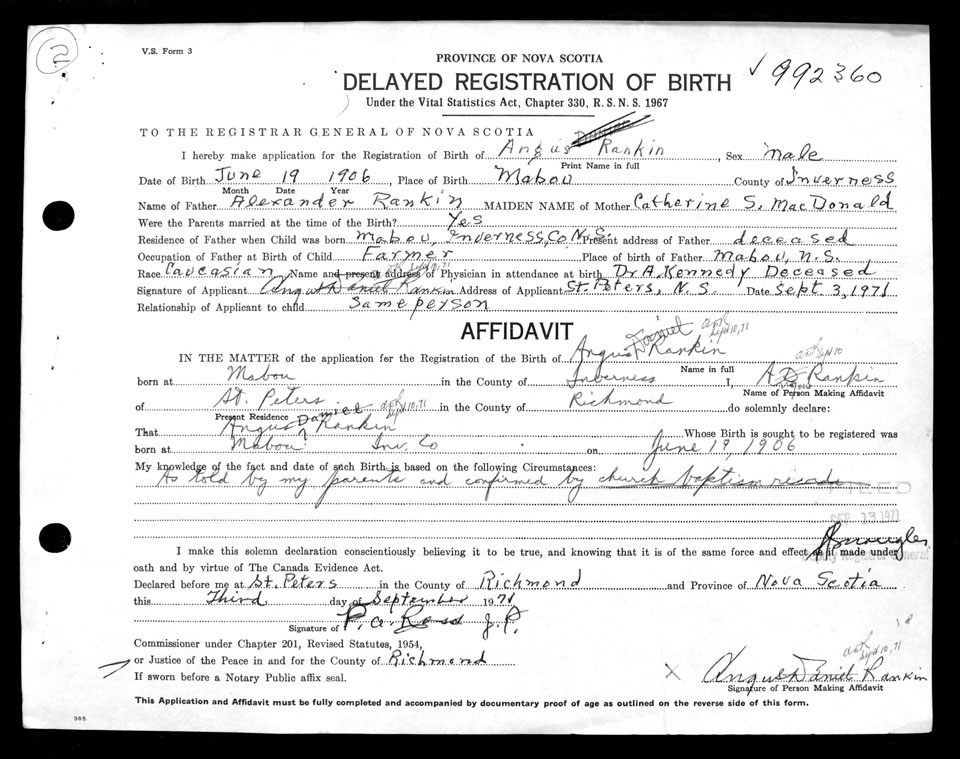 2
V.S. Form 3
PROVINCE OF NOVA SCOTIA
DELAYED REGISTRATION OF BIRTH
992360
Under the Vital Statistics Act, Chapter 330, R.S.N.S. 1967
TO THE REGISTRAR GENERAL OF NOVA SCOTIA
I hereby make application for the Registration of Birth of Angus Rankin, Sex male
Print Name in full
Date of Birth June 19 1906, Place of Birth Mabou County of Inverness
Month Date Year
Name of Father Alexander Rankin MAIDEN NAME of Mother Catherine S. MacDonald
Were the Parents married at the time of the Birth? Yes
Residence of Father when Child was born Mabou, Inverness, Co. N.S. Present address of Father deceased
Occupation of Father at Birth of Child Farmer Place of birth of Father Mabou, N.S.
Race Caucasian Name and present address of Physician in attendance at birth Dr A. Kennedy Deceased
Signature of Applicant Angus Daniel Rankin Address of Applicant St. Peters, N.S. Date Sept. 3, 1971
Relationship of Applicant to child same person
AFFIDAVIT
IN THE MATTER of the application for the Registration of Birth of Angus Daniel Rankin
Sept 10, 71
Name in full
born at Mabou in the County of Inverness I, A D Rankin
Name of Person Making Affidavit
of St. Peters in the County of Richmond do solemnly declare:
Present Residence
Sept 10, 71
That Angus Daniel Rankin Whose Birth is sought to be registered was
born at Mabou Inv. Co on June 19, 1906
My knowledge of the fact and date of such Birth is based on the following Circumstances:
As told by my parents and confirmed by church baptism records
FILED
SEP 13 1971
I make this solemn declaration conscientiously believing it to be true, and knowing that it is of the same force and effect as if made under
Deputy Registrar General
oath and by virtue of The Canada Evidence Act.
Declared before me at St. Peters in the County of Richmond and Province of Nova Scotia
this Third day of September 1971
Signature of P. A. J.P.
Commissioner under Chapter 201, Revised Statutes, 1954,
or Justice of the Peace in and for the County of Richmond
Sept 10, 71
If sworn before a Notary Public affix seal.
X Angus Daniel Rankin
Signature of Person Making Affidavit
This Application and Affidavit must be fully completed and accompanied by documentary proof of age as outlined on the reverse side of this form.
385